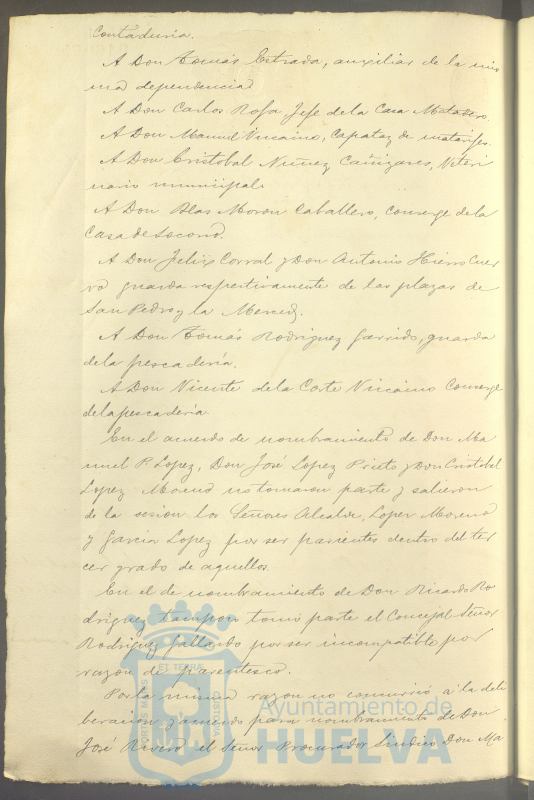 Contaduria.
A Don Tomás Estrada, auxiliar de la mis
ma dependencia
A Don Carlos Rofa Jefe de la Casa Matadero.
A Don Manuel Vizcaino, Capataz de matarifes.
A Don Cristobal Nuñez Cañizares, Veteri
nario municipal.
A Don Blas Moron Caballero, Conserge de la
Casa de Socorro.
A Don Felix Corral y Don Antonio Hierro Cuer
vo guarda respectivamente de las plazas de
San Pedro y la Merced.
A Don Tomás Rodriguez Garrido, guarda
de la pescadería.
A Don Vicente de la Corte Vizcaino Conserge
de la pescaderia
En el acuerdo de nombramiento de Don Ma
nuel P. Lopez, Don José Lopez Prieto y Don Cristobal
Lopez Moreno no tomaron parte y salieron
de la sesion los Señores Alcalde, Lopez Moreno
y Garcia Lopez por ser parientes dentro del ter
cer grado de aquellos.
En el de nombramiento de Don Ricardo Ro
driguez tampoco tomó parte el Concejal Señor
Rodriguez Gallardo por ser incompatible por
razon de parentesco.
Por la misma razon no concurrió a la deli
beracion y acuerdo para nombramiento de Don
José Rivero el Señor Procurador Sindico Don Ma
PORTUS MARIS ET TERRAE CUSTODIA
Ayuntamiento de
HUELVA